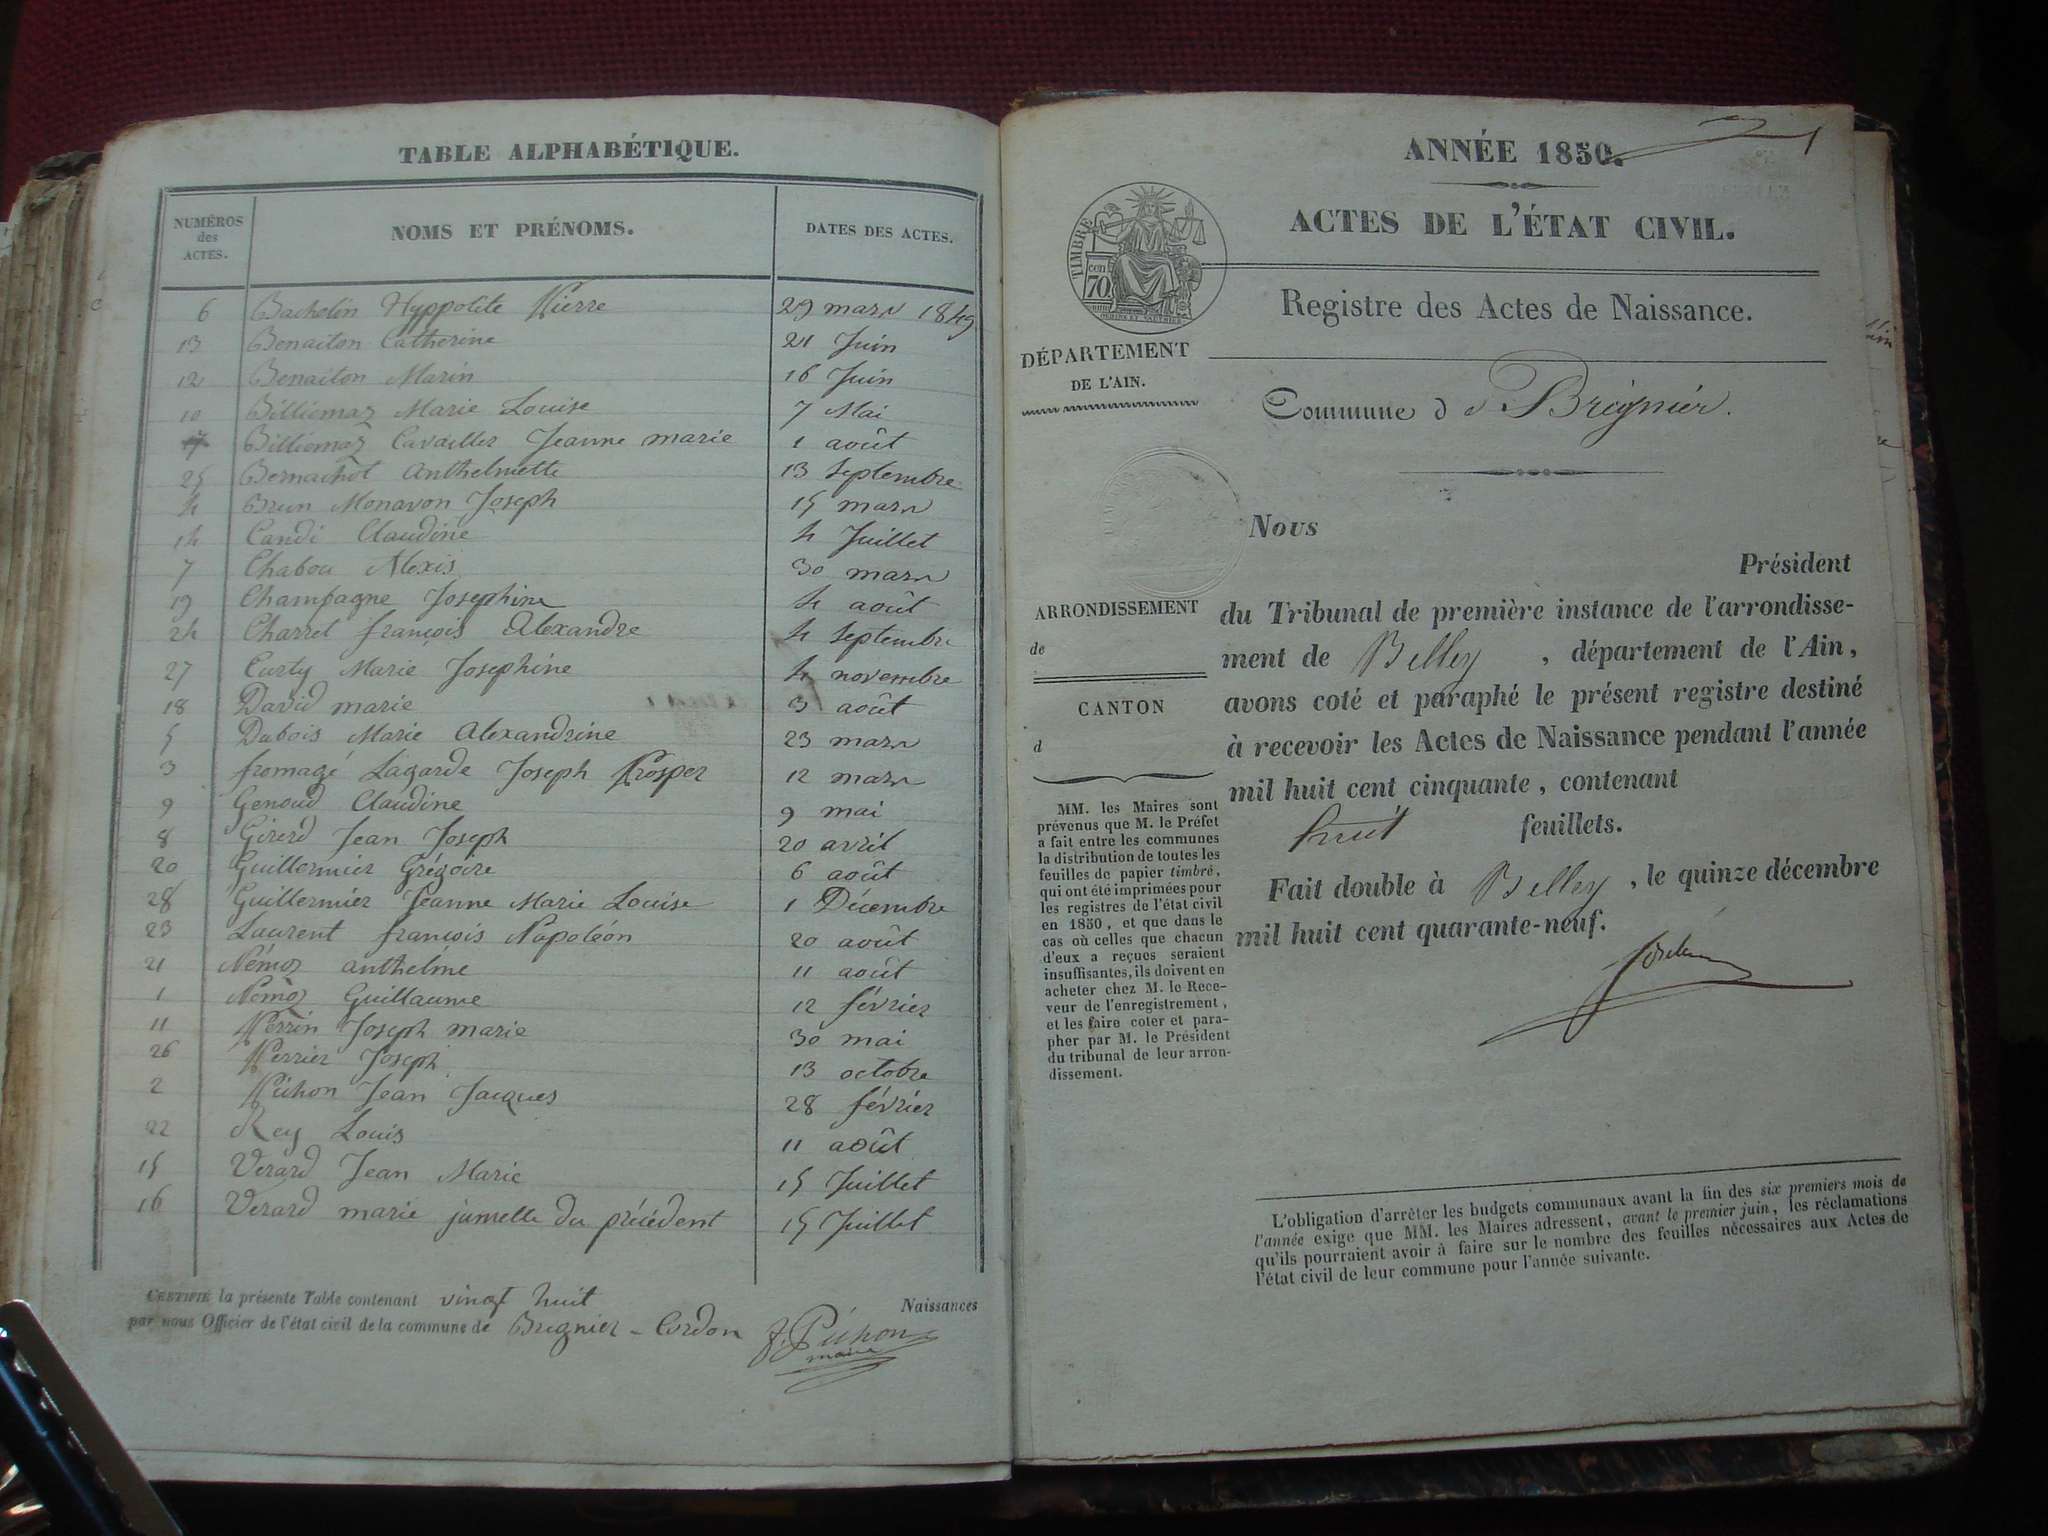 TABLE ALPHABÉTIQUE.
NUMÉROS des ACTES. NOMS ET PRÉNOMS. DATES DES ACTES.
6 Bachelin Hyppolite Pierre 29 mars 1849
13 Benaiton Catherine 21 Juin
12 Benaiton Marin 16 Juin
10 Billiomaz Marie Louise 7 Mai
17 Billiomaz Cavailler Jeanne marie 1 août
25 Bernachot Anthelmette 13 Septembre
4 Brun Monavon Joseph 15 mars
14 Candi Claudine 4 Juillet
7 Chabou Alexis 30 mars
19 Champagne Josephine 4 août
24 Charrel françois Alexandre 4 Septembre
27 Curty Marie Josephine 4 novembre
18 David marie 3 août
5 Dubois Marie Alexandrine 23 mars
3 fromagé Lagarde Joseph Prosper 12 mars
9 Genoud Claudine 9 mai
8 Girerd Jean Joseph 20 avril
20 Guillermier Grégoire 6 août
28 Guillermier Jeanne Marie Louise 1 Décembre
23 Laurent françois Napoléon 20 août
21 Pémoz anthelme 11 août
1 Pémoz Guillaume 12 février
11 Perrin Joseph marie 30 mai
26 Perrier Joseph 13 octobre
2 Pichon Jean Jacques 28 février
22 Rey Louis 11 août
15 Verard Jean Marie 15 Juillet
16 Verard marie jumelle du précédent 15 Juillet
CERTIFIÉ la présente Table contenant vingt huit Naissances
par nous Officier de l'état civil de la commune de Bregnier - Cordon
f. Pichon
maire
ANNÉE 1850. 1
ACTES DE L'ÉTAT CIVIL.
TIMBRE
cen
70
Registre des Actes de Naissance.
DÉPARTEMENT
DE L'AIN.
Commune d e Brégnier.
Nous
Président
du Tribunal de première instance de l'arrondisse-
ment de Belley, département de l'Ain,
avons coté et paraphé le présent registre destiné
à recevoir les Actes de Naissance pendant l'année
mil huit cent cinquante, contenant
huit feuillets.
Fait double à Belley, le quinze décembre
mil huit cent quarante-neuf.
ARRONDISSEMENT
de
CANTON
d
MM. les Maires sont
prévenus que M. le Préfet
a fait entre les communes
la distribution de toutes les
feuilles de papier timbré,
qui ont été imprimées pour
les registres de l'état civil
en 1850, et que dans le
cas où celles que chacun
d'eux a reçues seraient
insuffisantes, ils doivent en
acheter chez M. le Rece-
veur de l'enregistrement,
et les faire coter et para-
pher par M. le Président
du tribunal de leur arron-
dissement.
L'obligation d'arrêter les budgets communaux avant la fin des six premiers mois de
l'année exige que MM. les Maires adressent, avant le premier juin, les réclamations
qu'ils pourraient avoir à faire sur le nombre des feuilles nécessaires aux Actes de
l'état civil de leur commune pour l'année suivante.